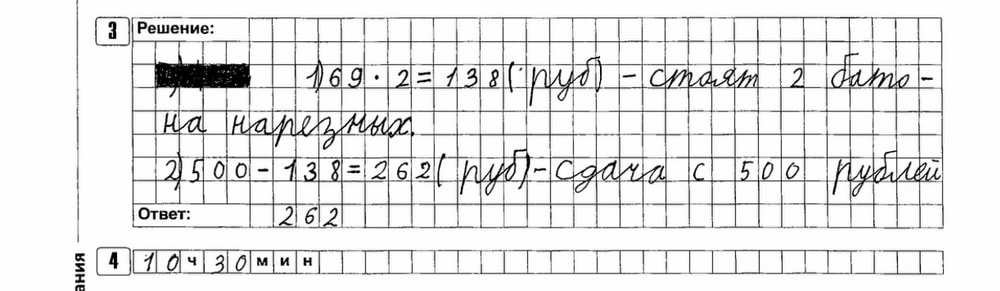 3 Решение:
1) 69 · 2 = 138 (руб) - стоят 2 бато-
на нарезных.
2) 500 - 138 = 262 (руб) - сдача с 500 рублей
Ответ: 262
4 10 ч 30 мин
ания